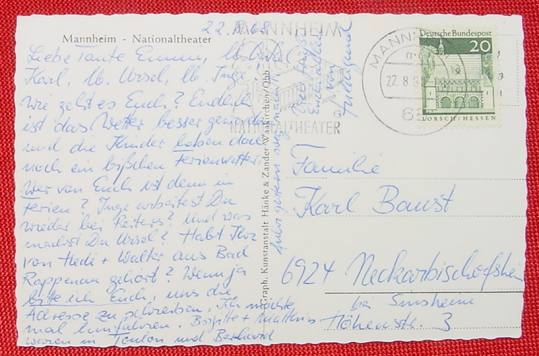 Mannheim - Nationaltheater
22.8.68
Liebe Tante Emma, lb. Onkel
Karl, lb. Ursel, lb. Inge,
wie geht es Euch? Endlich
ist das Wetter besser geworden
und die Kinder haben doch
noch ein bißchen Ferienwetter.
Wer von Euch ist denn in
Ferien? Inge arbeitest Du
wieder bei Reiters? Und was
machst Du Ursel? Habt Ihr
von Hedi + Walter aus Bad
Rappenau gehört? Wenn ja
bitte ich Euch, uns die
Adresse zu schreiben. Ich möchte
mal hinfahren. Brigitte + Matthias
waren in Toulon und
MANNHEIM
NATIONALTHEATER
MANN
22.8.
68
Deutsche Bundespost
20
LORSCH/HESSEN
Graph. Kunstanstalt Hänke & Zander Waakirchen/Obb.
Familie
Karl Baust
6924 Neckarbischofsheim
bei Sinsheim
Höhenstr. 3